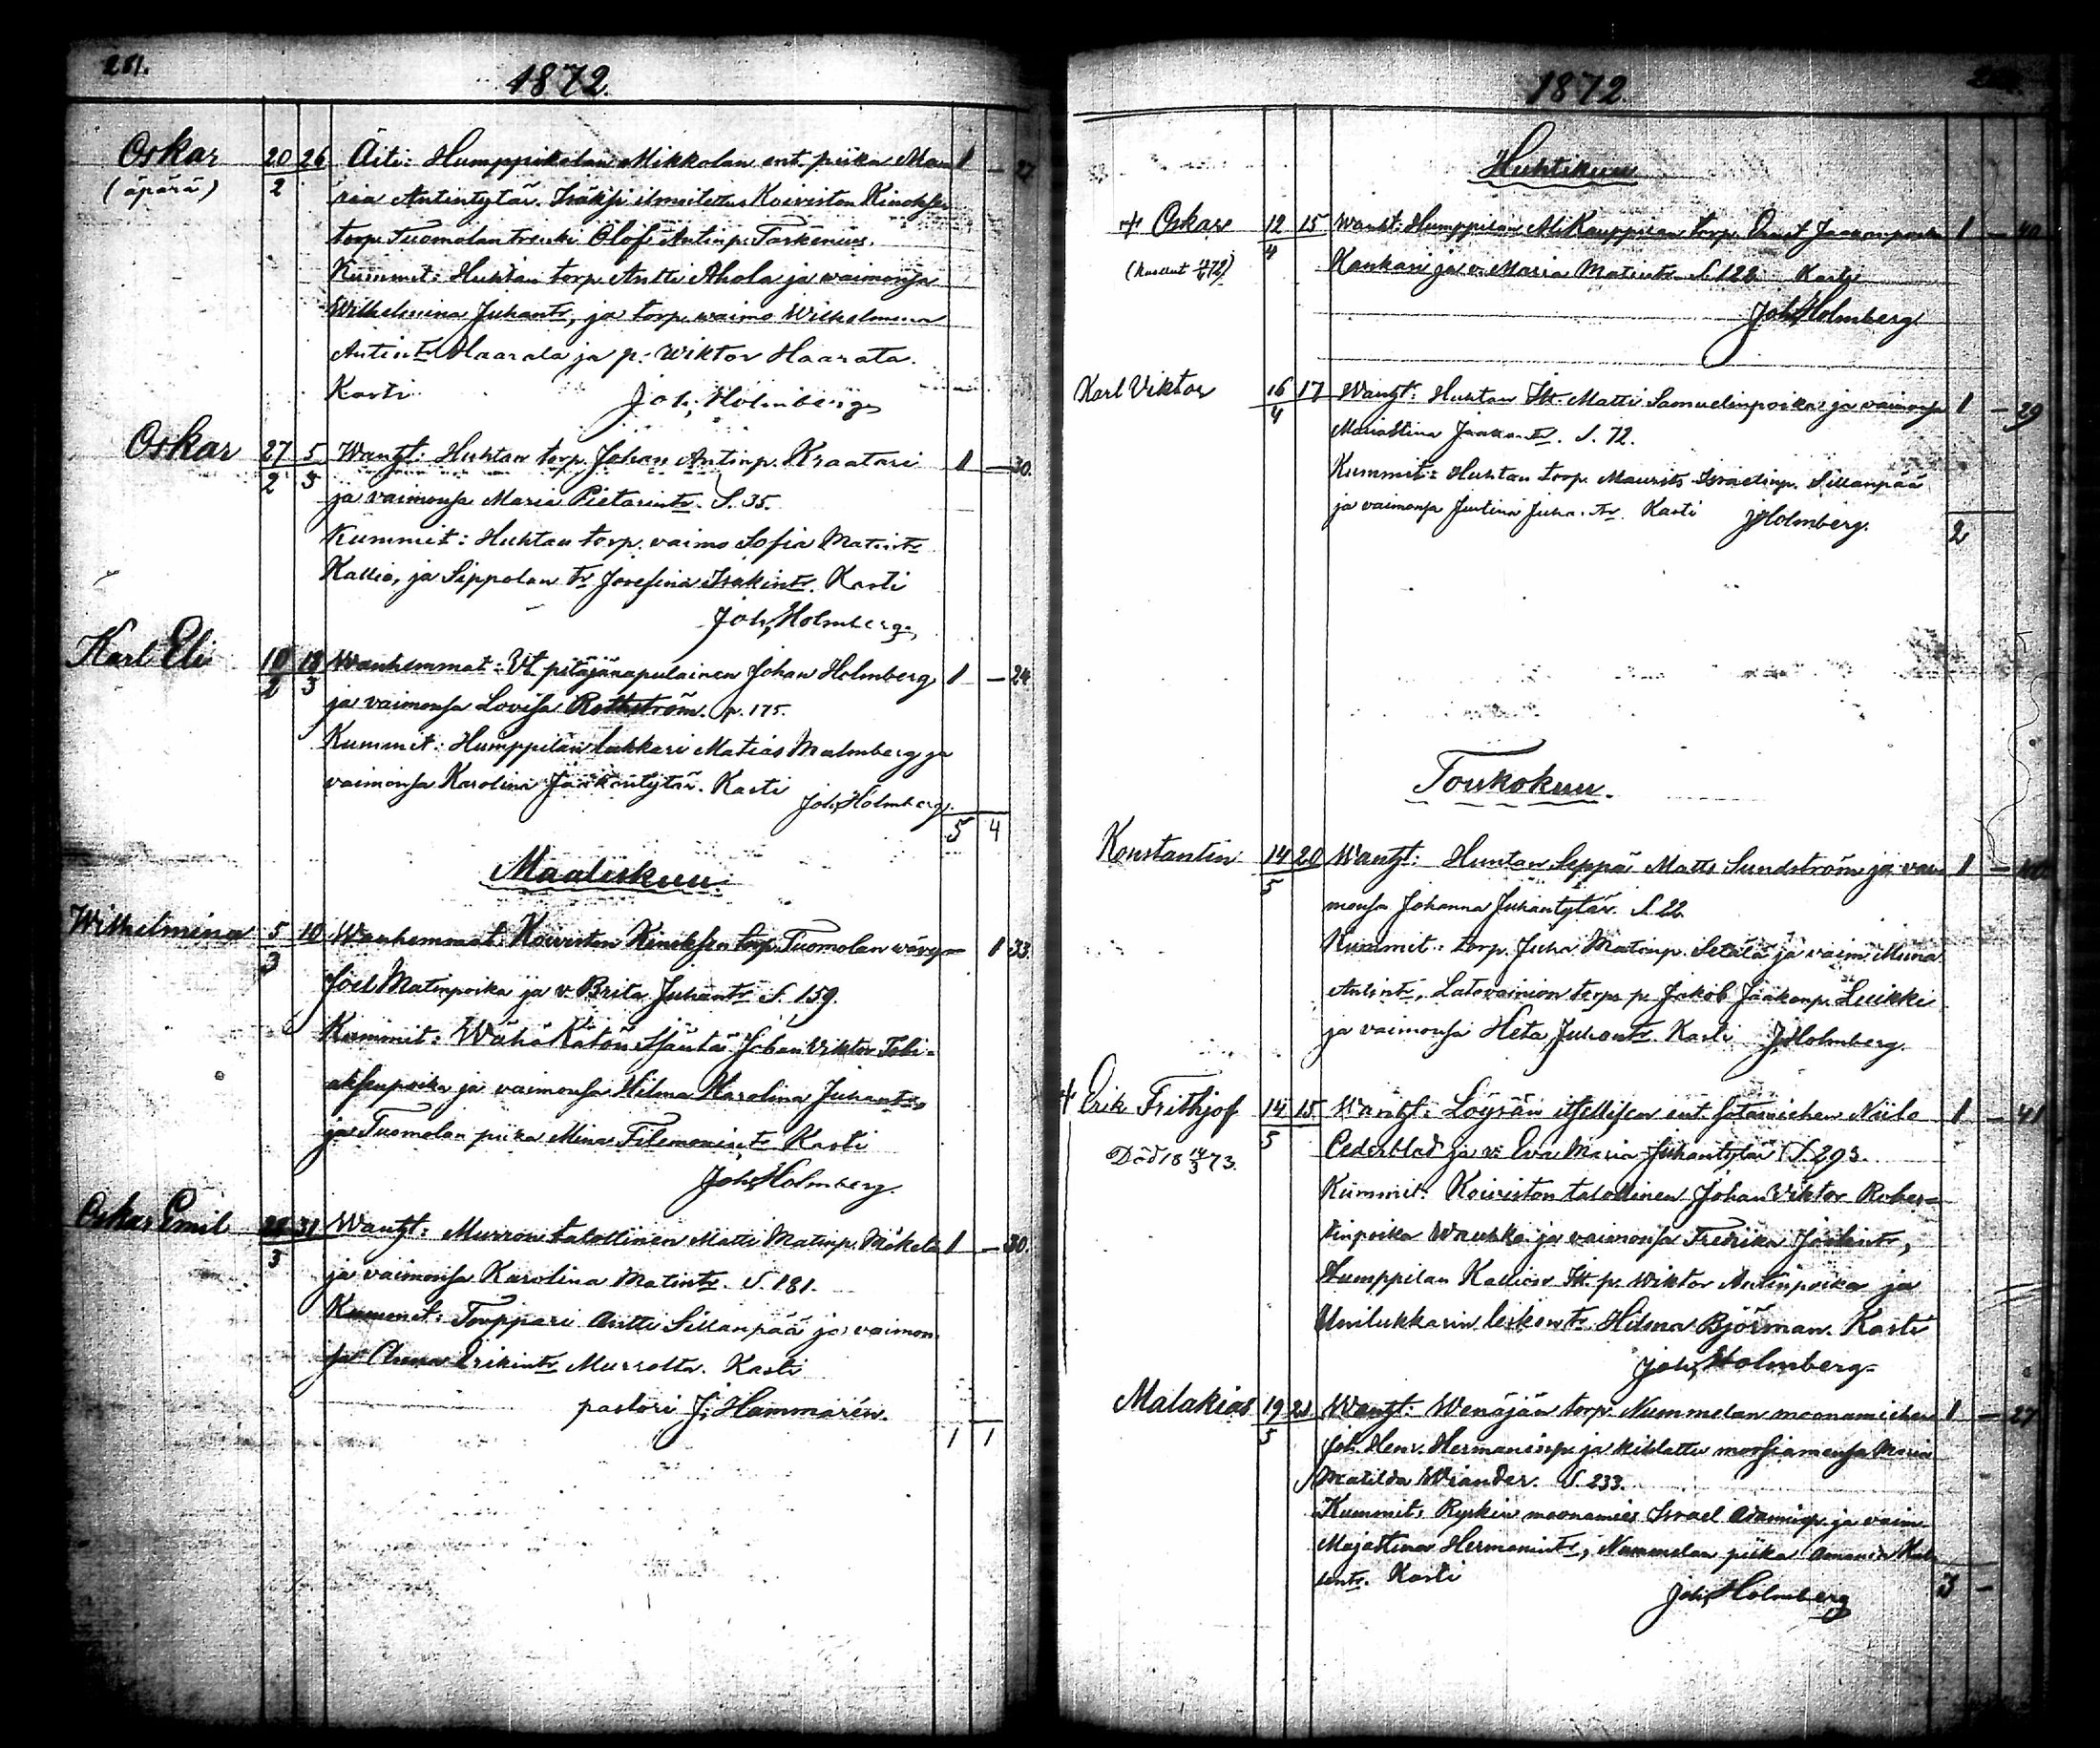 261.
1872.
Oskar 20/2 26 Äiti: Humppilan Mikkolan ent. piika Ma- 1 — 27
(äpärä) ria Antintytär. Isäksi ilmoitettu Koiviston Kinoksen
torp. Tuomolan renki Olof Antinp. Tarkenius.
Kummit: Huhtan torp. Antti Ahola ja waimonsa
Wilhelmina Juhantr, ja torp. waimo Wilhelmina
Antintr Haarala ja p. Wiktor Haarala.
Kasti Joh. Holmberg
Oskar 27/2 5/3 Wanht: Huhtan torp. Johan Antinp. Kraatari 1 — 30.
ja vaimonsa Maria Pietarintr. S. 35.
Kummit: Huhtan torp. vaimo Sofia Matintr
Kallio, ja Sippolan tr Josefina Isakintr. Kasti
Joh. Holmberg
Karl Eli 18/3 Wanhemmat: Vt. pitäjänapulainen Johan Holmberg 1 — 24
ja vaimonsa Lovisa Rothström. p. 175.
Kummit: Humppilan lukkari Matias Malmberg ja
vaimonsa Karolina Jaakontytär. Kasti
Joh. Holmberg.
5 4
Maaliskuu.
Wilhelmina 5/3 10 Wanhemmat: Koiviston Kinoksen torp. Tuomolan — 1 33.
Joel Matinpoika ja v. Brita Juhantr S. 159.
Kummit: Wähä Kätön Isäntä Johan Viktor Tobi-
aksenpoika ja vaimonsa Hilma Karolina Juhantr,
ja Tuomolan piika Mina Filemonintr Kasti
Joh. Holmberg.
Oskar Emil 31 Wanht: Murron talollinen Matti Matinp. Mäkelä 1 — 30.
3
ja vaimonsa Karolina Matintr. S. 181.
Kummit: Torppari Antti Sillanpää ja vaimon-
sa Erikintr Murrolta. Kasti
pastori J. Hammarén.
1 1
1872.
Huhtikuu
+ Oskar 12/4 15 Wanht: Humppilan torp. Jaakonpoika 1 — 40
(kuollut 72) Kankari ja v. Maria Matintr S. 126. Kasti
Joh. Holmberg
Karl Viktor 16/4 17 Wanht: Huhtan Itt. Matti Samuelinpoika ja vaimonsa 1 — 29
Mariastina Jaakontr. S. 72.
Kummit: Huhtan torp. Maurits Israelinp. Sillanpää
ja vaimonsa Justina Juha. tr. Kasti J Holmberg.
2
Toukokuu.
Konstantin 14/5 20 Wanht: Huhtan Seppä Matts Sundström ja vai- 1 —
monsa Johanna Juhantytär. S. 22.
Kummit: torp. Juha Matinp. Setälä ja vaim. Miina
Antintr, Latovainion torp. p. Jakob Jaakonp. Luikki
ja vaimonsa Heta Juhantr. Kasti J. Holmberg.
+ Erik Frithjof 14/5 15 Wanht: Löysän itsellisen ent. sotamiehen Niilo 1 — 41
Död 18 14/3 73. Cederblad ja v. Eva Maria Juhantytär S. 293.
Kummit: Koiviston talollinen Johan Viktor Rober-
tinpoika Wauhka ja vaimonsa Fredrika Joelintr,
Humppilan Kallion Itt. p. Wiktor Antinpoika ja
Urilukkarin leskentr. Hilma Björman. Kasti
Joh. Holmberg.
Malakias 19/5 Wanht: Wenäjän torp. Nummelan moonamiehen 1 — 27
Joh. Henr. Hermaninp. ja kihlattu morsiamensa Maria
Matilda Wiander. S. 233.
Kummit: Ryskin moonamies Israel Adaminp. ja vaim.
Majastina Hermanintr, Nummelan piika Amanda
Kasti
Joh. Holmberg
3 —